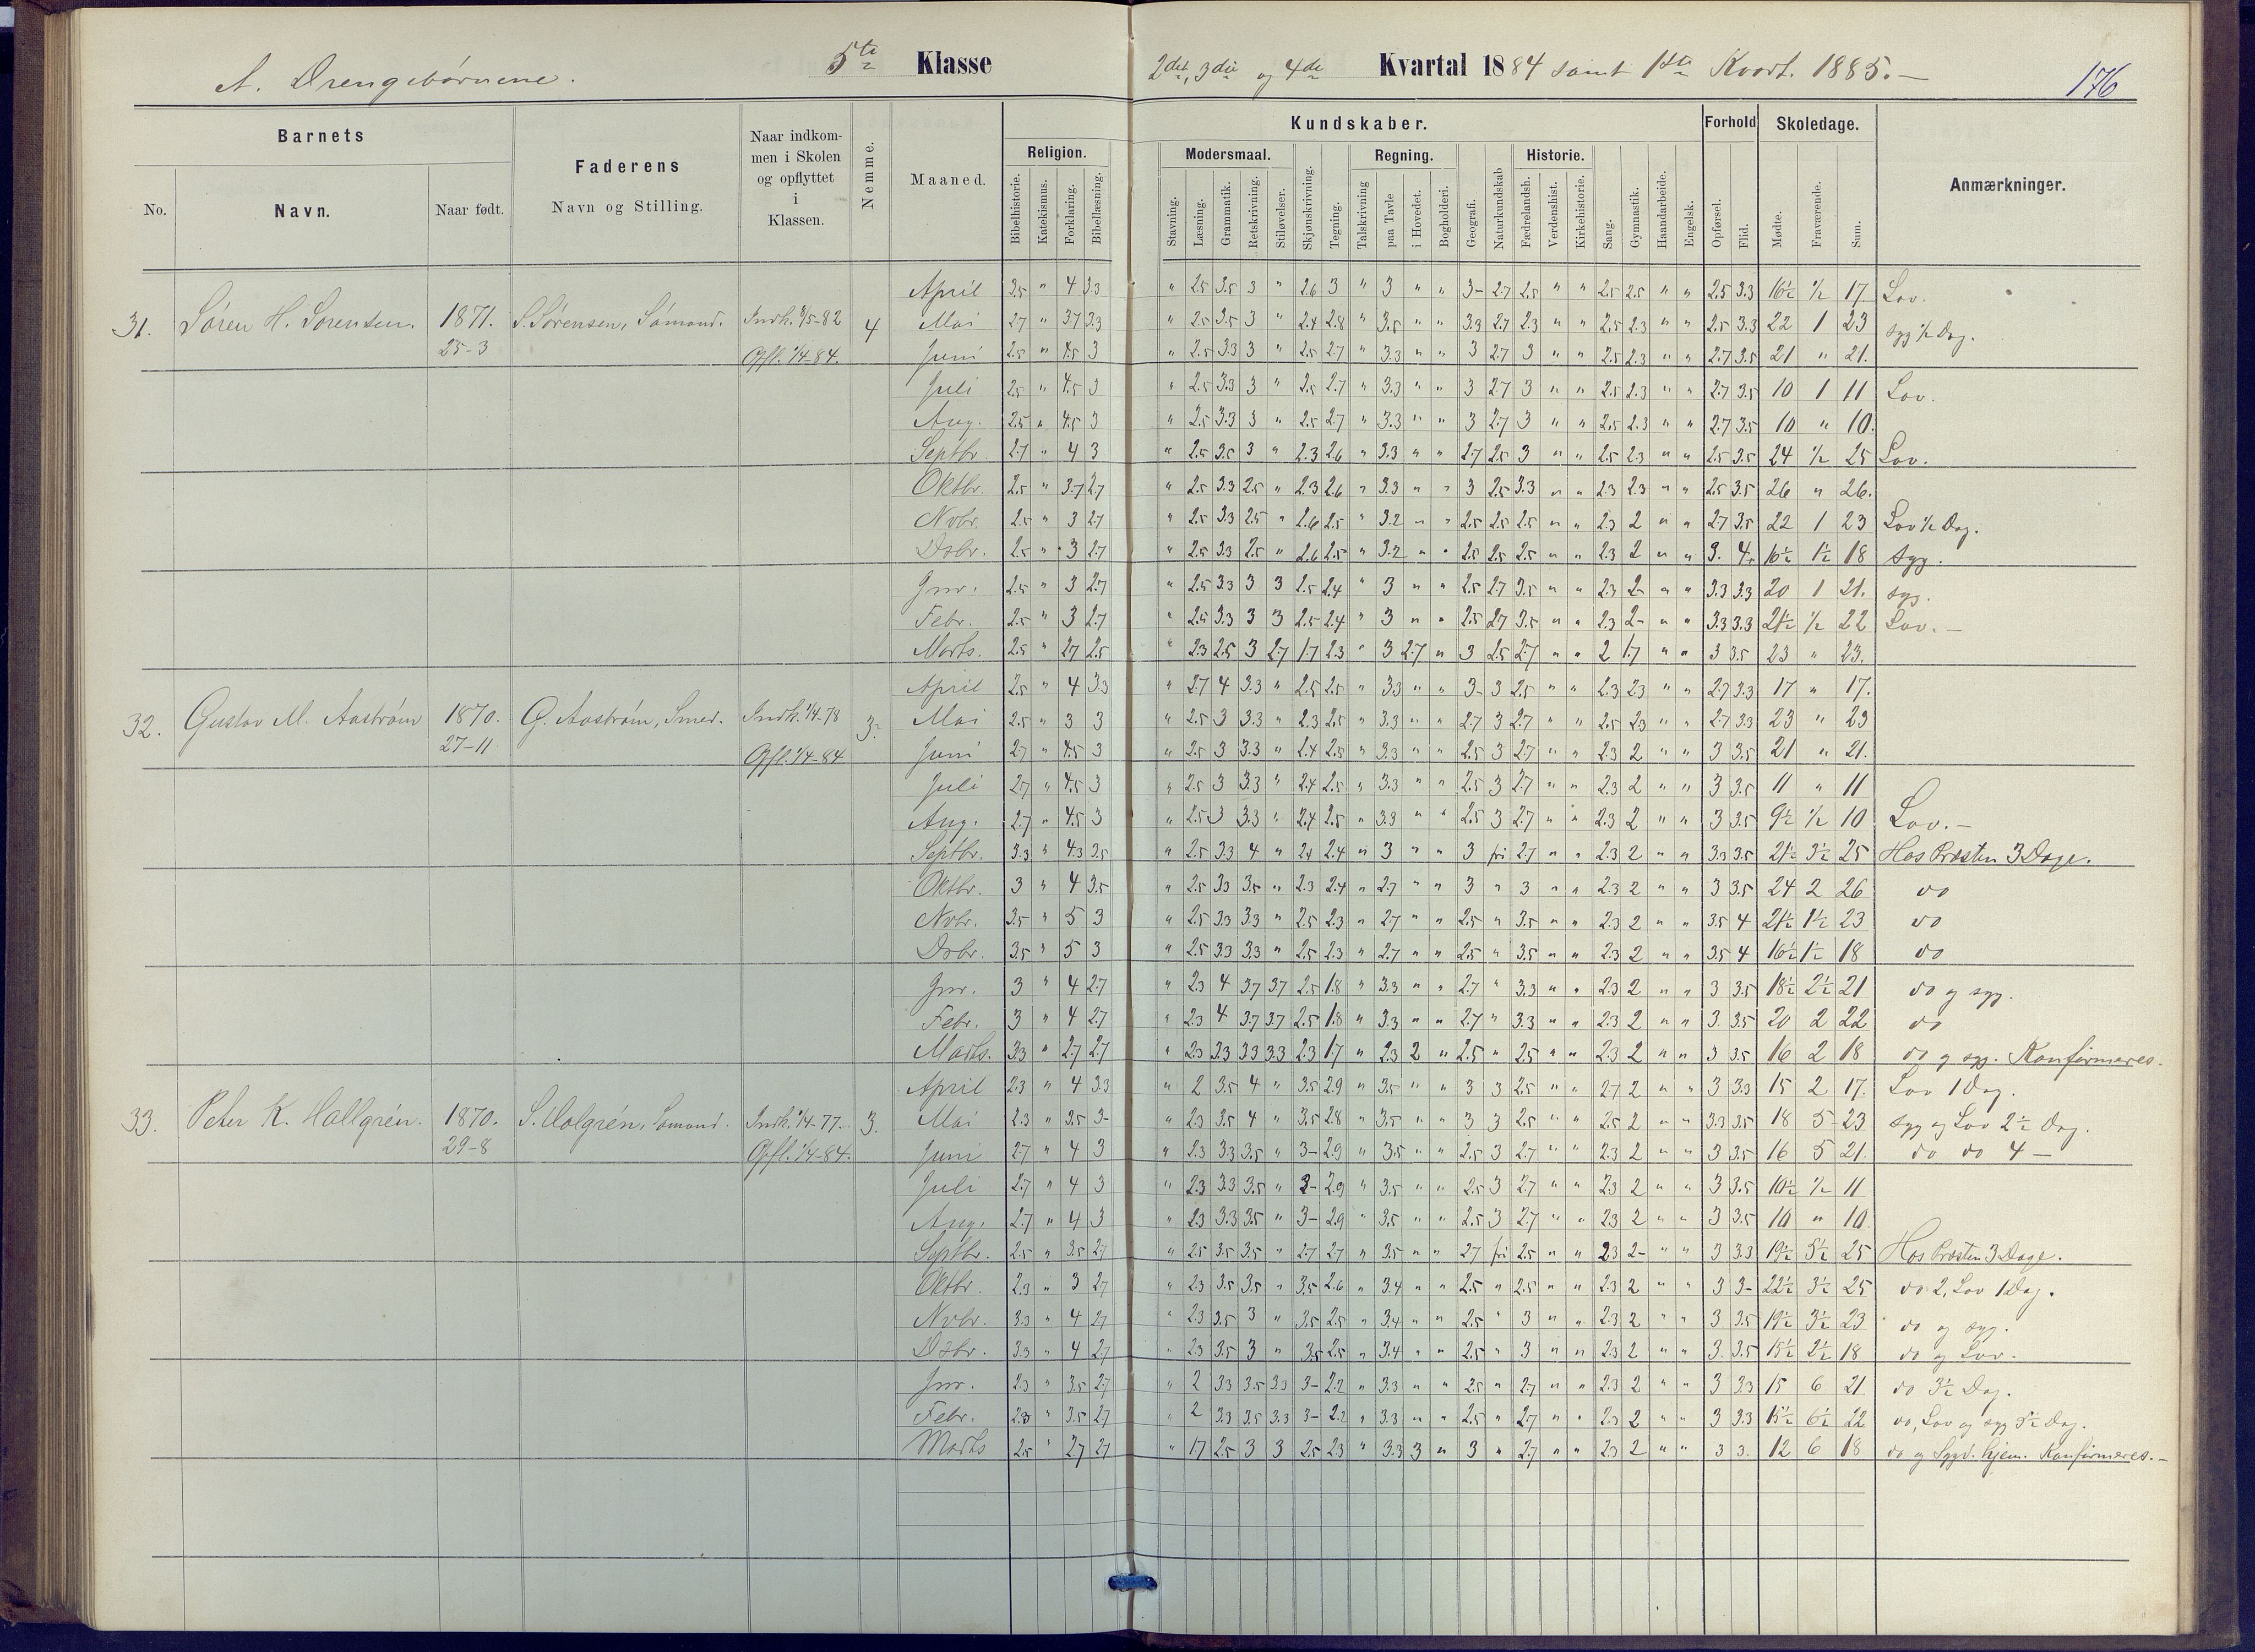 A. Drengebørnene. 5te Klasse 2det, 3die og 4de Kvartal 1884 samt 1ste Kvart. 1885.— 176
Barnets
No. Navn. Naar født.
Faderens
Navn og Stilling.
Naar indkom-
men i Skolen
og opflyttet
i
Klassen.
Nemme.
Maaned.
Kundskaber.
Religion.
Bibelhistorie. Katekismus. Forklaring. Bibellæsning.
Modersmaal.
Stavning. Læsning. Grammatik. Retskrivning. Stiløvelser.
Skjønskrivning. Tegning.
Regning.
Talskrivning paa Tavle i Hovedet. Bogholderi.
Geografi. Naturkundskab
Historie.
Fædrelandsh. Verdenshist. Kirkehistorie.
Sang. Gymnastik. Haandarbeide. Engelsk.
Forhold
Opførsel. Flid.
Skoledage.
Mødte. Fraværende. Sum.
Anmærkninger.
April 2.5 " 4 3.3 " 2.5 3.5 3 " 2.6 3 " 3 " " 3- 2.7 2.5 " " 2.5 2.5 " " 2.5 3.3 16½ ½ 17 Lov.
31. Søren H. Sørensen. 1871. S. Sørensen, Sømand. Indk. 8/5-82 4 Mai 2.7 " 3.7 3.3 " 2.5 3.5 3 " 2.4 2.8 " 3.5 " " 3.3 2.7 2.3 " " 2.5 2.3 " " 2.5 3.3 22 1 23 syg ½ Dag.
25-3 Opfl. 1/4-84. Juni 2.5 " 4.5 3 " 2.5 3.3 3 " 2.5 2.7 " 3.3 " " 3 2.7 3 " " 2.5 2.3 " " 2.7 3.5 21 " 21.
Juli 2.5 " 4.5 3 " 2.5 3.3 3 " 2.5 2.7 " 3.3 " " 3 2.7 3 " " 2.5 2.3 " " 2.7 3.5 10 1 11 Lov.
Aug. 2.5 " 4.5 3 " 2.5 3.3 3 " 2.5 2.7 " 3.3 " " 3 2.7 3 " " 2.5 2.3 " " 2.7 3.5 10 " 10.
Septbr. 2.7 " 4 3 " 2.5 3.5 3 " 2.3 2.6 " 3.3 " " 2.7 2.5 3 " " 2.5 2.3 " " 2.5 3.5 24 ½ 25 Lov.
Oktbr. 2.5 " 3.7 2.7 " 2.5 3.3 2.5 " 2.3 2.6 " 3.3 " " 3 2.5 3.3 " " 2.3 2.3 " " 2.5 3.5 26 " 26.
Nvbr. 2.5 " 3 2.7 " 2.5 3.3 2.5 " 2.6 2.5 " 3.2 " " 2.5 2.5 2.5 " " 2.3 2 " " 2.7 3.5 22 1 23 Lov ½ Dag.
Dsbr. 2.5 " 3 2.7 " 2.5 3.3 2.5 " 2.6 2.5 " 3.2 " " 2.5 2.5 2.5 " " 2.3 2 " " 3. 4 16½ 1½ 18 Syg.
Jnr. 2.5 " 3 2.7 " 2.5 3.3 3 3 2.5 2.4 " 3 " " 2.5 2.7 3.5 " " 2.3 2- " " 3.3 3.3 20 1 21. syg.
Febr. 2.5 " 3 2.7 " 2.5 3.3 3 3 2.5 2.4 " 3 " " 2.5 2.7 3.5 " " 2.3 2- " " 3.3 3.3 21½ ½ 22 Lov.—
Marts. 2.5 " 2.7 2.5 " 2.3 2.5 3 2.7 1.7 2.3 " 3 2.7 " 3 2.5 2.7 " " 2 1.7 " " 3 3.5 23 " 23.
April 2.5 " 4 3.3 " 2.7 4 3.3 " 2.5 2.5 " 3.3 " " 3- 3 2.5 " " 2.3 2.3 " " 2.7 3.3 17 " 17.
32. Gustav M. Aastrøm 1870. G. Aastrøm, Smed. Indk. 1/4-78 3. Mai 2.5 " 3 3 " 2.5 3 3.3 " 2.3 2.5 " 3.3 " " 2.7 3 2.7 " " 2.5 2.3 " " 2.7 3.3 23 " 23
27-11 Opfl. 1/4-84 Juni 2.7 " 4.5 3 " 2.5 3 3.3 " 2.4 2.5 " 3.3 " " 2.5 3 2.7 " " 2.3 2 " " 3 3.5 21 " 21.
Juli 2.7 " 4.5 3 " 2.5 3 3.3 " 2.4 2.5 " 3.3 " " 2.5 3 2.7 " " 2.3 2 " " 3 3.5 11 " 11
Aug. 2.7 " 4.5 3 " 2.5 3 3.3 " 2.4 2.5 " 3.3 " " 2.5 3 2.7 " " 2.3 2 " " 3 3.5 9½ ½ 10 Lov.—
Septbr. 3.3 " 4.3 3.5 " 2.5 3.3 4 " 2.4 2.4 " 3 " " 3 fri 2.7 " " 2.3 2 " " 3.3 3.5 21½ 3½ 25 Hos Præsten 3 Dage.
Oktbr. 3 " 4 3.5 " 2.5 3.3 3.5 " 2.3 2.4 " 2.7 " " 3 " 3 " " 2.3 2 " " 3 3.5 24 2 26 do
Nvbr. 3.5 " 5 3 " 2.5 3.3 3.3 " 2.5 2.3 " 2.7 " " 2.5 " 3.5 " " 2.3 2 " " 3.5 4 21½ 1½ 23 do
Dsbr. 3.5 " 5 3 " 2.5 3.3 3.3 " 2.5 2.3 " 2.7 " " 2.5 " 3.5 " " 2.3 2 " " 3.5 4 16½ 1½ 18 do
Jnr. 3 " 4 2.7 " 2.3 4 3.7 3.7 2.5 1.8 " 3.3 " " 2.7 " 3.3 " " 2.3 2 " " 3 3.5 18½ 2½ 21 do og syg.
Febr. 3 " 4 2.7 " 2.3 4 3.7 3.7 2.5 1.8 " 3.3 " " 2.7 " 3.3 " " 2.3 2 " " 3. 3.5 20 2 22 do
Marts. 3.3 " 2.7 2.7 " 2.3 3.3 3.3 3.3 2.3 1.7 " 2.3 2 " 2.5 " 2.5 " " 2.3 2 " " 3 3.5 16 2 18 do og syg. Konfirmeres.
April 2.3 " 4 3.3 " 2 3.5 4 " 3.5 2.9 " 3.5 " " 3 3 2.5 " " 2.7 2 " " 3 3.3 15 2 17. Lov 1 Dag.
33. Peter K. Hallgrén. 1870. S. Halgrén, Sømand. Indk. 1/4-77. 3. Mai 2.3 " 3.5 3- " 2.3 3.5 4 " 3.5 2.8 " 3.5 " " 3 3 2.5 " " 2.5 2 " " 3.3 3.5 18 5 23 syg og Lov 2½ Dag.
29-8 Opfl. 1/4-84. Juni 2.7 " 4 3 " 2.3 3.3 3.5 " 3- 2.9 " 3.5 " " 2.5 3 2.7 " " 2.3 2 " " 3 3.5 16 5 21. do do 4 —
Juli 2.7 " 4 3 " 2.3 3.3 3.5 " 3- 2.9 " 3.5 " " 2.5 3 2.7 " " 2.3 2 " " 3 3.5 10½ ½ 11
Aug. 2.7 " 4 3 " 2.3 3.3 3.5 " 3- 2.9 " 3.5 " " 2.5 3 2.7 " " 2.3 2 " " 3 3.5 10 " 10
Septbr. 2.5 " 3.5 2.7 " 2.5 3.5 3.5 " 2.7 2.7 " 3.5 " " 2.7 fri 2.5 " " 2.3 2- " " 3 3.3 19½ 5½ 25 Hos Præsten 3 Dage.
Oktbr. 2.3 " 3 2.7 " 2.3 3.5 3.5 " 3.5 2.6 " 3.4 " " 2.5 " 2.5 " " 2.3 2 " " 3 3- 22½ 3½ 25 do 2, Lov 1 Dag.
Nvbr. 3.3 " 4 2.7 " 2.3 3.5 3 " 3.5 2.5 " 3.4 " " 2.5 " 3 " " 2.3 2 " " 3 3.5 19½ 3½ 23 do og syg.
Dsbr. 3.3 " 4 2.7 " 2.3 3.5 3 " 3.5 2.5 " 3.4 " " 2.5 " 3 " " 2.3 2 " " 3. 3.5 15½ 2½ 18 do og Lov.
Jnr. 2.3 " 3.5 2.7 " 2 3.3 3.5 3.3 3- 2.2 " 3.3 " " 2.5 " 2.7 " " 2.3 2 " " 3 3.3 15 6 21 do 3½ Dag.
Febr. 2.3 " 3.5 2.7 " 2 3.3 3.5 3.3 3- 2.2 " 3.3 " " 2.5 " 2.7 " " 2.3 2 " " 3 3.3 15½ 6½ 22 do, Lov og syg 3½ Dag.
Marts 2.5 " 2.7 2.7 " 1.7 2.5 3 3 2.5 2.3 " 3.3 3 " 3 " 2.7 " " 2.3 2 " " 3 3. 12 6 18 do og Sygd. hjem. Konfirmeres.—